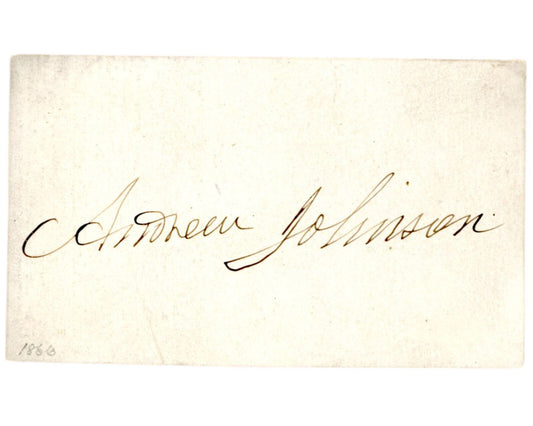 Andrew Johnson
1866